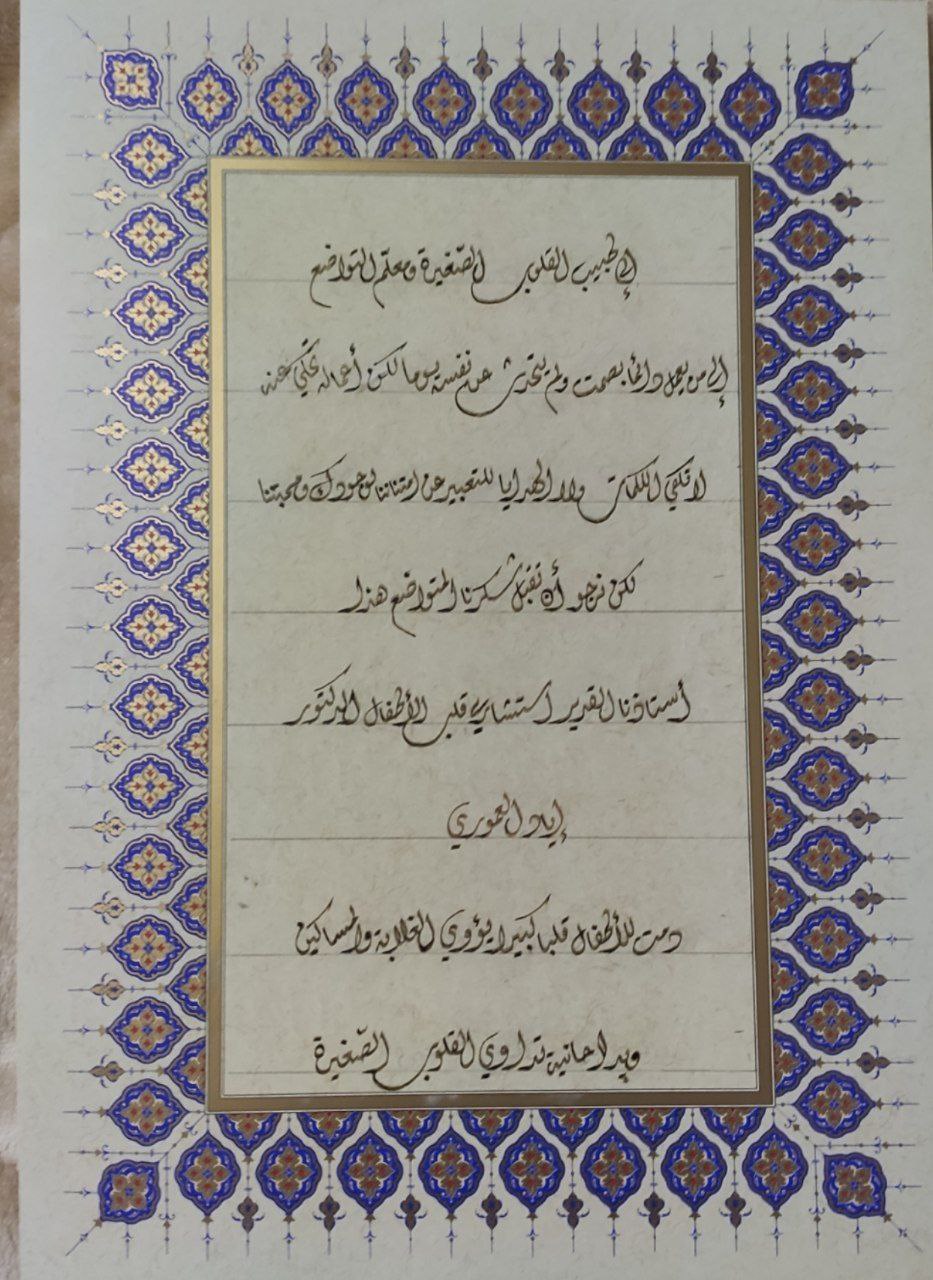 إلى طبيب القلوب الصّغيرة ومعلّم التواضع
إلى من يعمل دائما بصمت ولم يتحدث عن نفسه يوما لكن أعماله تحكي عنه
لا تكفي الكلمات ولا الهدايا للتعبير عن امتناننا لوجودك وصحبتنا
لكن نرجو أن تقبل شكرنا المتواضع هذا
أستاذنا القدير استشاري قلب الأطفال الدكتور
إياد العموري
دمت للأطفال قلبا كبيرا يؤوي الغلابة والمساكين
ويدا حانية تداوي القلوب الصّغيرة